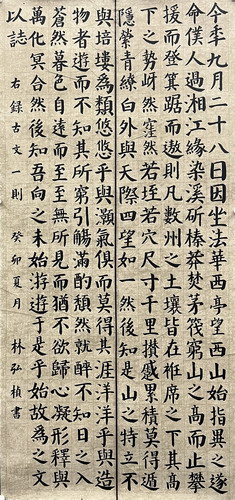 今年九月二十八日因坐法華西亭望西山始指異之遂
命僕人過湘江緣染溪斫榛莽焚茅茷窮山之高而止攀
援而登箕踞而遨則凡數州之土壤皆在衽席之下其高
下之勢岈然窪然若垤若穴尺寸千里攢蹙累積莫得遁
隱縈青繚白外與天際四望如一然後知是山之特立不
與培塿為類悠悠乎與灝氣俱而莫得其涯洋洋乎與造
物者遊而不知其所窮引觴滿酌頹然就醉不知日之入
蒼然暮色自遠而至至無所見而猶不欲歸心凝形釋與
萬化冥合然後知吾向之未始游游于是乎始故為之文
以誌
右錄古文一則 癸卯夏月 林弘楨書